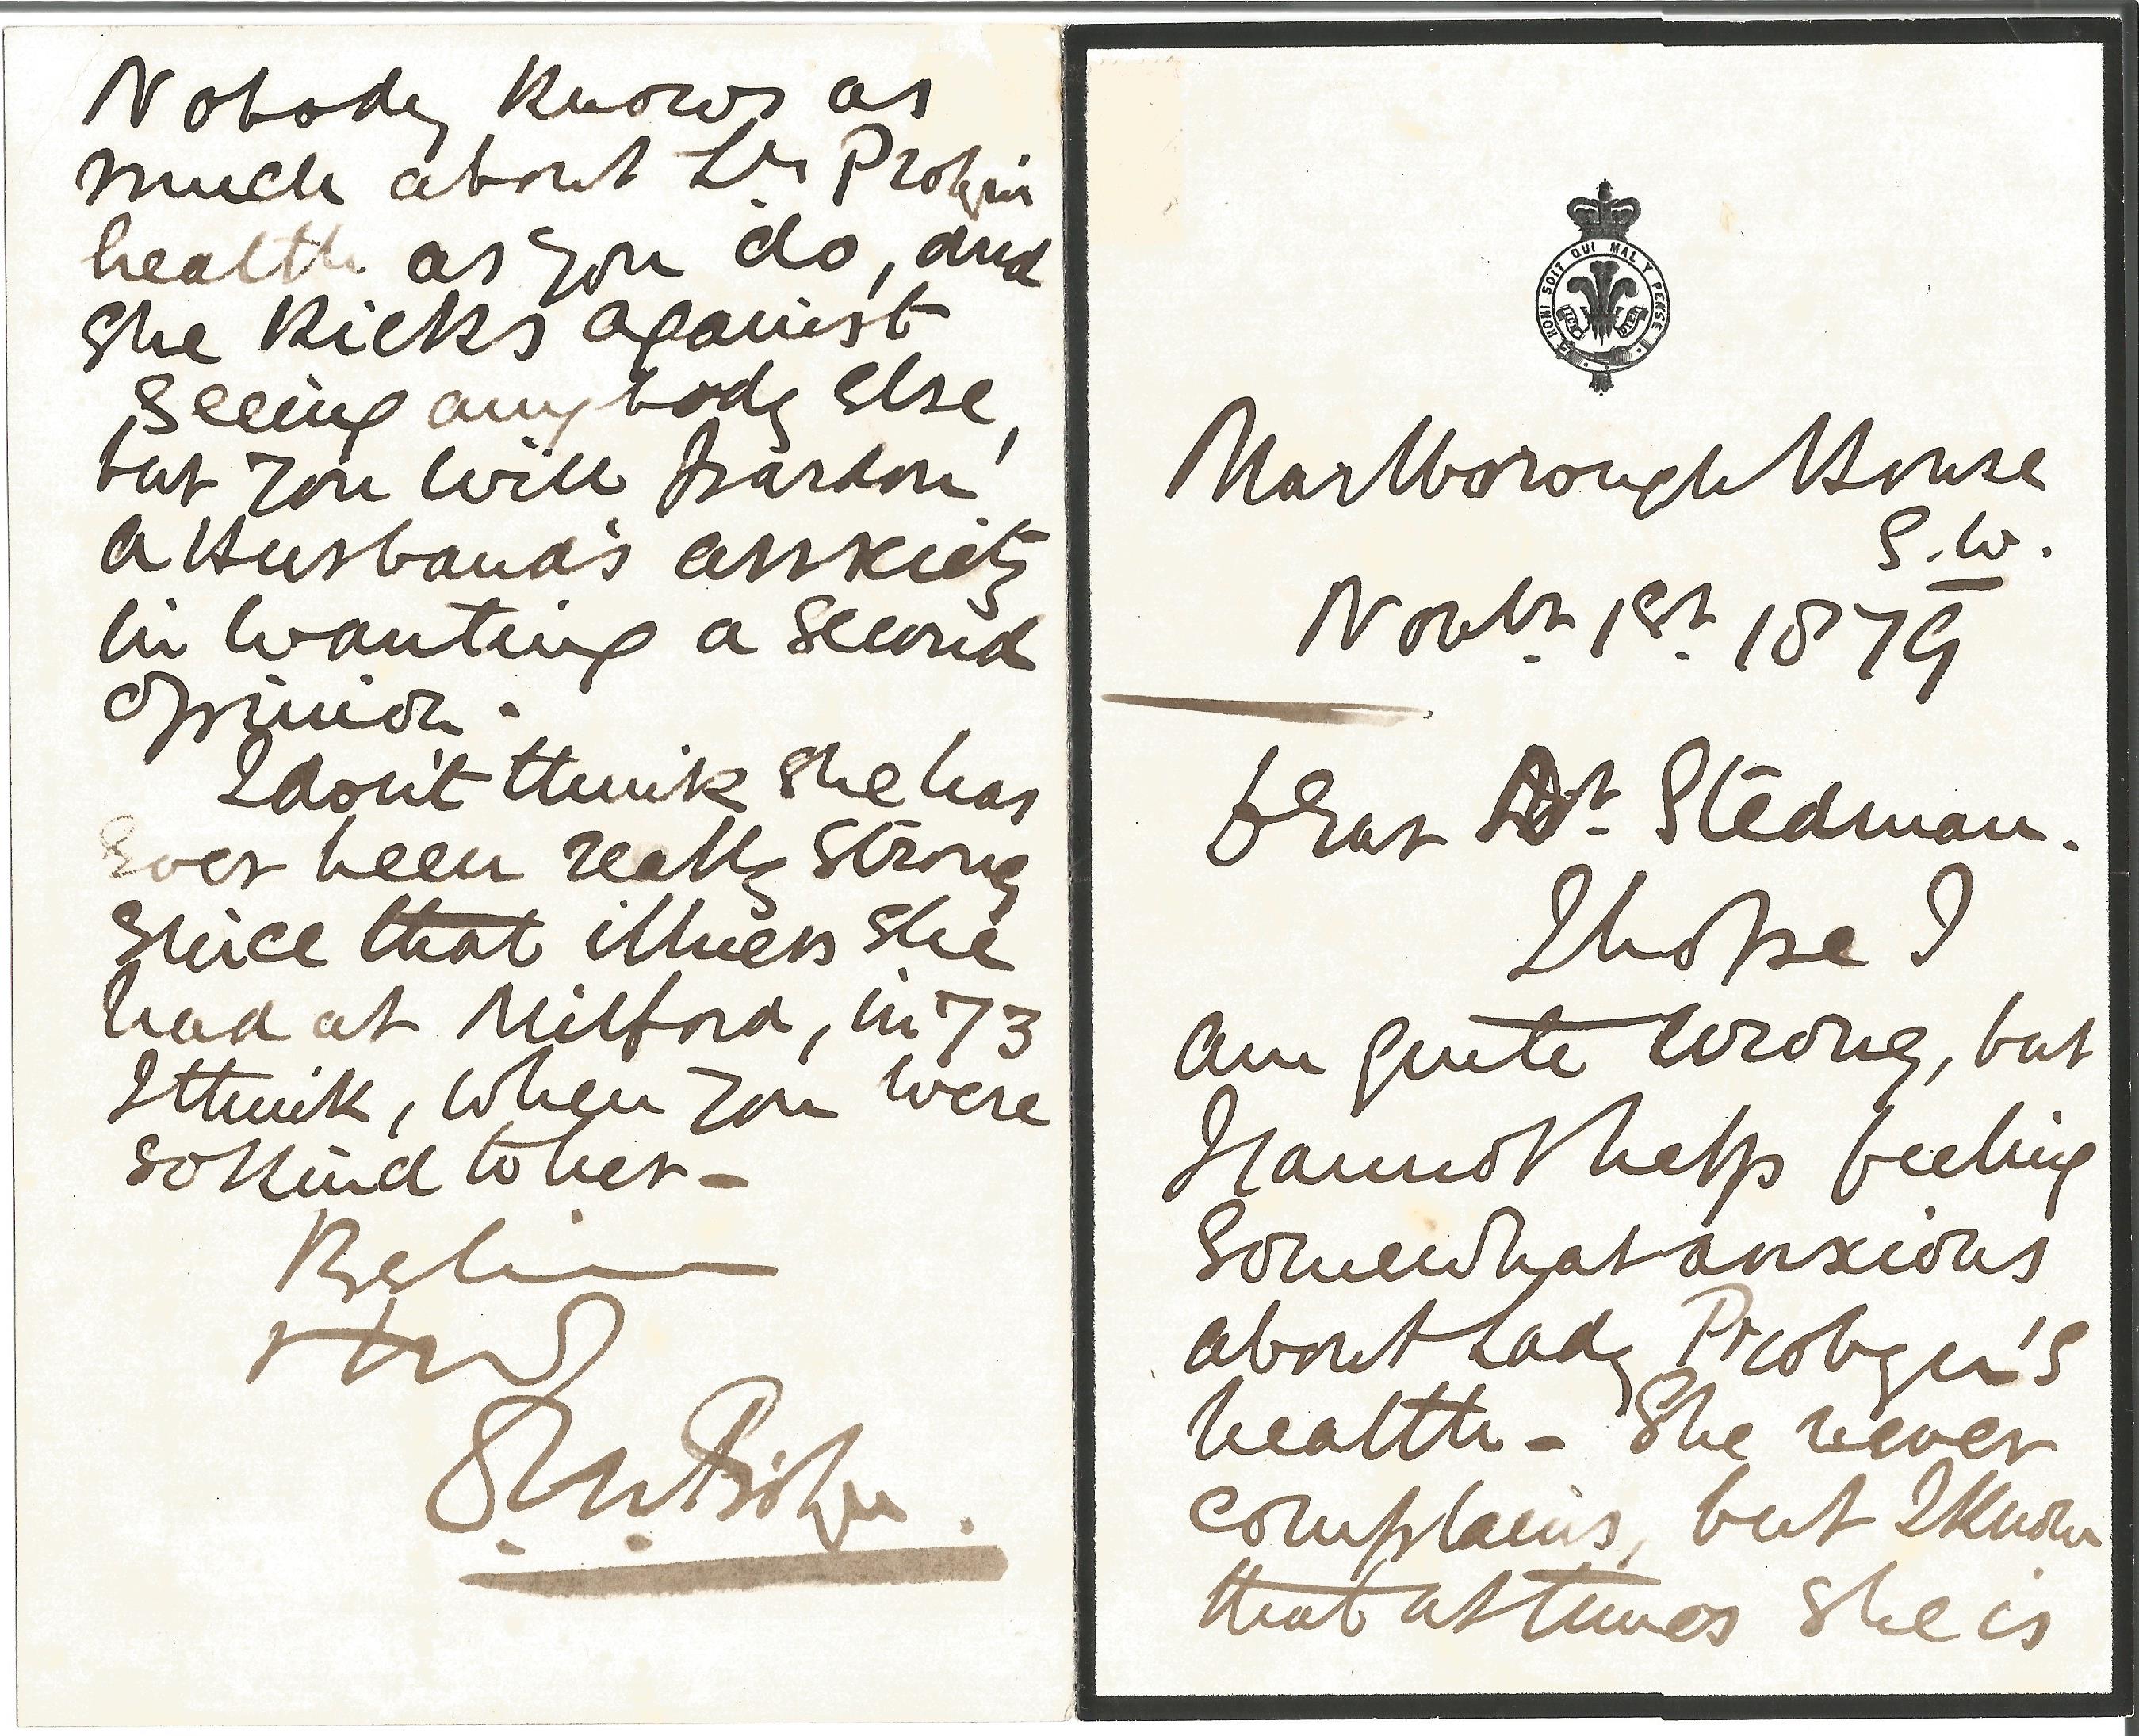 HONI SOIT QUI MAL Y PENSE
ICH DIEN
Marlborough House
S.W.
Novbr. 1st. 1879
Dear Dr. Stedman.
I hope I
am quite wrong, but
I cannot help feeling
somewhat anxious
about Lady Probyn's
health - She never
complains, but I know
that at times she is
Nobody knows as
much about Ly. Probyn
health as you do, and
she kicks against
seeing anybody else,
but you will pardon
a Husband's anxiety
in wanting a second
opinion.
I don't think she has
ever been really strong
since that illness she
had at Milford, in 73
I think, when you were
so kind to her -
D. M. Probyn.